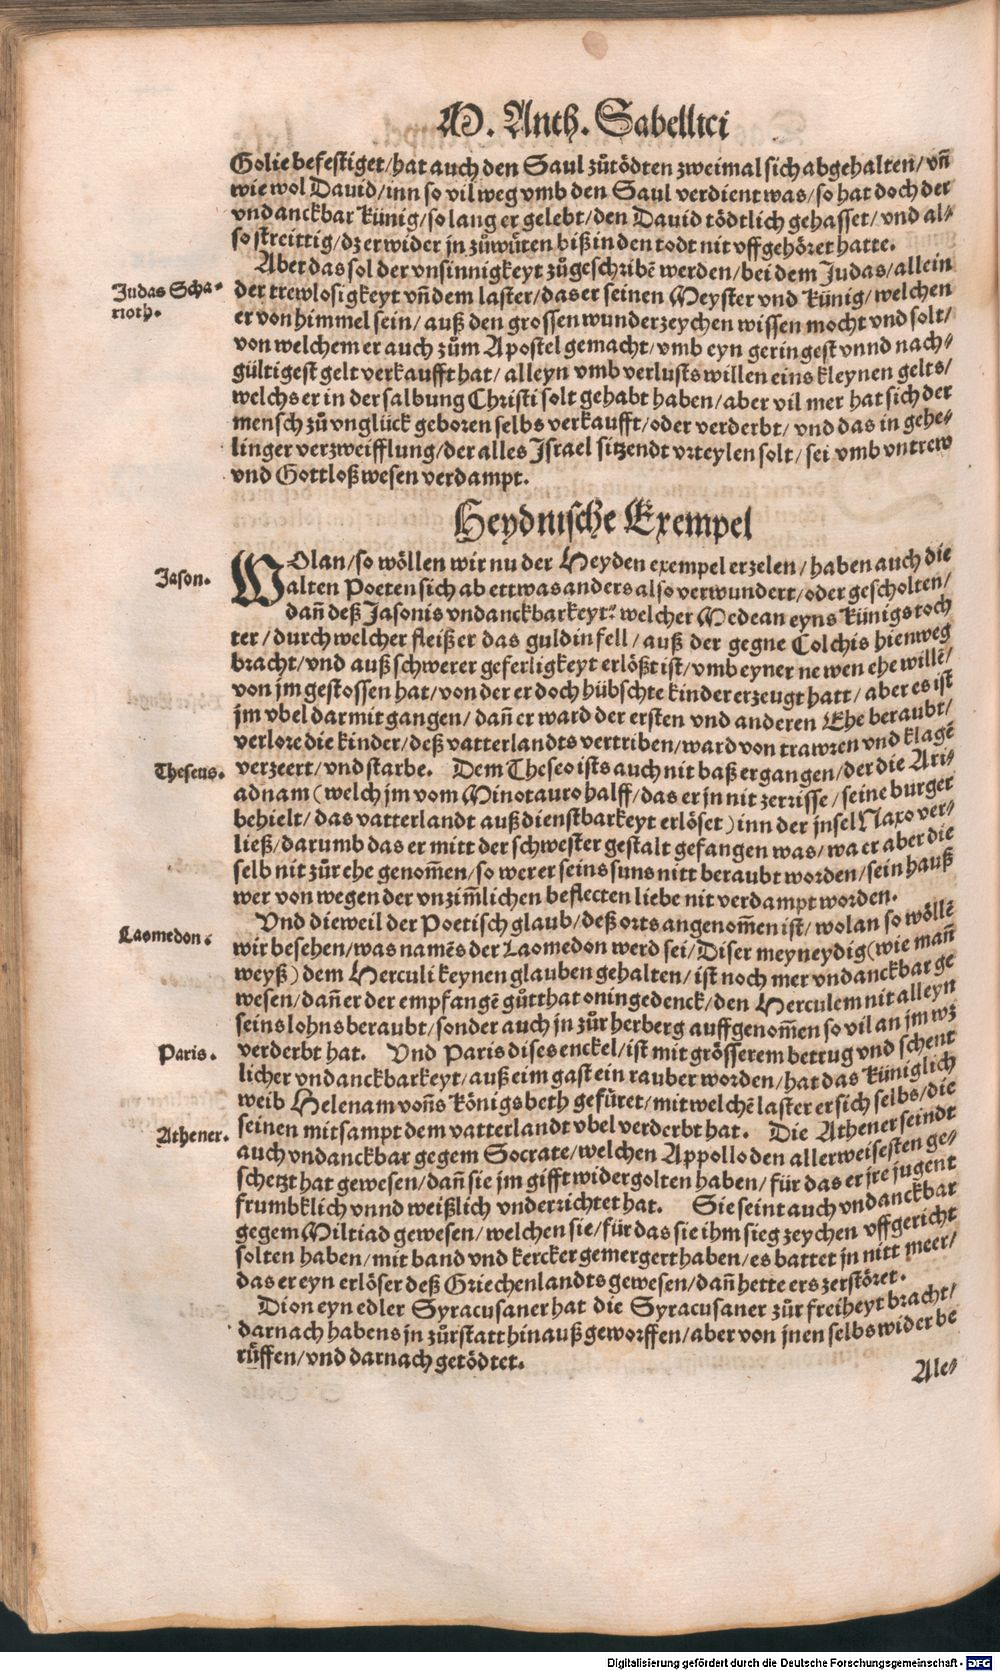 M. Anth. Sabellici
Golie befestiget/hat auch den Saul zůtödten zweimal sich abgehalten/vñ
wie wol David/inn so vil weg vmb den Saul verdient was/so hat doch der
vndanckbar Künig/so lang er gelebt/den David tödtlich gehasset/vnd al⸗
so streittig/dz er wider jn zůwůten biß in den todt nit vffgehöret hatte.
Aber das sol der vnsinnigkeyt zůgeschribẽ werden/bei dem Judas/allein
Judas Scha⸗
rioth.
der trewlosigkeyt vñ dem laster/das er seinen Meyster vnd Künig/welchen
er von himmel sein/auß den grossen wunderzeychen wissen mocht vnd solt/
von welchem er auch zům Apostel gemacht/vmb eyn geringest vnnd nach⸗
gültigest gelt verkaufft hat/alleyn vmb verlusts willen eins kleynen gelts/
welchs er in der salbung Christi solt gehabt haben/aber vil mer hat sich der
mensch zů vnglück geboren selbs verkaufft/oder verderbt/vnd das in gehe⸗
linger verzweifflung/der alles Israel sitzendt vrteylen solt/sei vmb vntrew
vnd Gottloß wesen verdampt.
Heydnische Exempel
Jason.
WOlan/so wöllen wir nu der Heyden exempel erzelen/haben auch die
alten Poeten sich ab ettwas anders also verwundert/oder gescholten/
dañ deß Jasonis vndanckbarkeyt? welcher Medean eyns Künigs toch
ter/durch welcher fleiß er das guldin fell/auß der gegne Colchis hienweg
bracht/vnd auß schwerer geferligkeyt erlößt ist/vmb eyner newen ehe willẽ/
von jm gestossen hat/von der er doch hübschte kinder erzeugt hatt/aber es ist
jm vbel darmit gangen/dañ er ward der ersten vnd anderen Ehe beraubt/
verlore die kinder/deß vatterlandts vertriben/ward von trawren vnd klagẽ
Theseus.
verzeert/vnd starbe. Dem Theseo ists auch nit baß ergangen/der die Ari⸗
adnam (welch jm vom Minotauro halff/das er jn nit zerrisse/seine burger
behielt/das vatterlandt auß dienstbarkeyt erlöset) inn der jnsel Naxo ver⸗
ließ/darumb das er mitt der schwester gestalt gefangen was/wa er aber die
selb nit zůr ehe genom̃en/so wer er seins suns nitt beraubt worden/sein hauß
wer von wegen der vnzim̃lichen beflecten liebe nit verdampt worden.
Vnd dieweil der Poetisch glaub/deß orts angenom̃en ist/wolan so wöllẽ
Laomedon.
wir besehen/was namẽs der Laomedon werd sei/Diser meyneydig (wie mañ
weyß) dem Herculi keynen glauben gehalten/ist noch mer vndanckbar ge
wesen/dañ er der empfangẽ gůtthat oningedenck/den Herculem nit alleyn
seins lohns beraubt/sonder auch jn zůr herberg auffgenom̃en so vil an jm wz
Paris.
verderbt hat. Vnd Paris dises enckel/ist mit grösserem betrug vnd schent
licher vndanckbarkeyt/auß eim gast ein rauber worden/hat das Küniglich
weib Helenam voñs Königs beth gefüret/mit welchẽ laster er sich selbs/die
Athener.
seinen mitsampt dem vatterlandt vbel verderbt hat. Die Athener seindt
auch vndanckbar gegem Socrate/welchen Appollo den allerweisesten ge⸗
schetzt hat gewesen/dañ sie jm gifft widergolten haben/für das er jre jugent
frumbklich vnnd weißlich vnderrichtet hat. Sie seint auch vndanckbar
gegem Miltiad gewesen/welchen sie/für das sie ihm sieg zeychen vffgericht
solten haben/mit band vnd kercker gemergert haben/es battet jn nitt meer/
das er eyn erlöser deß Griechenlandts gewesen/dañ hette ers zerstöret.
Dion eyn edler Syracusaner hat die Syracusaner zůr freiheyt bracht/
darnach habens jn zůr statt hinauß geworffen/aber von jnen selbs wider be
rüffen/vnd darnach getödtet.
Ale⸗
Digitalisierung gefördert durch die Deutsche Forschungsgemeinschaft - DFG